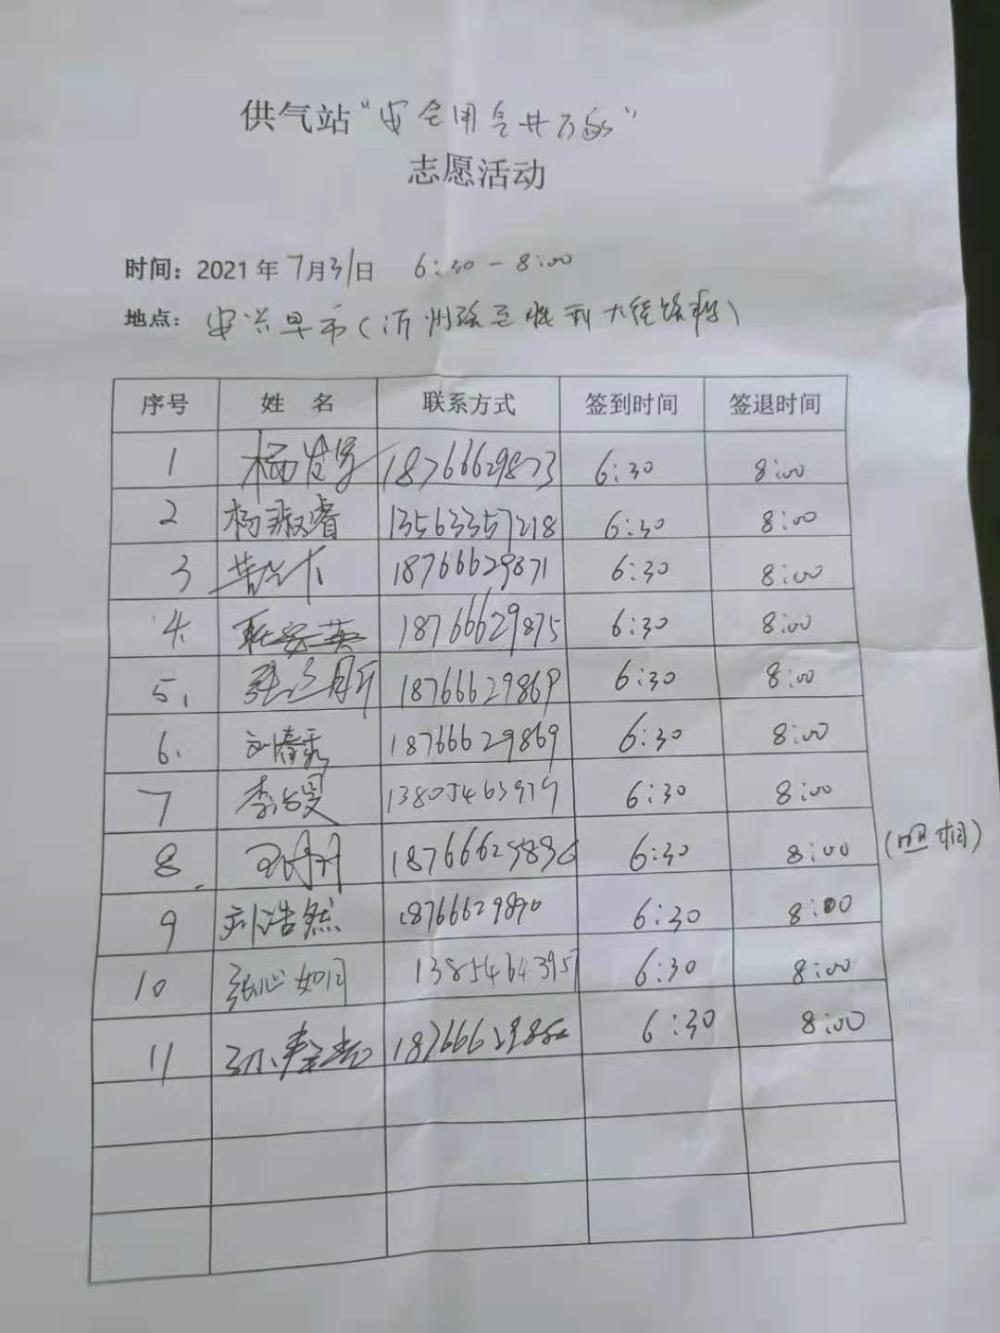 供气站“安全用气进万家”
志愿活动
时间：2021年7月31日 6:30-8:00
地点：安兴早市（沂州路至胜利
序号 姓名 联系方式 签到时间 签退时间
1 杨 18766629873 6:30 8:00
2 杨淑睿 13563357218 6:30 8:00
3 18766629871 6:30 8:00
4. 18766629875 6:30 8:00
5. 张 18766629869 6:30 8:00
6. 刘春秀 18766629869 6:30 8:00
7 李 6:30 8:00
8. 6:30 8:00 (照相)
9 刘浩然 18766629890 6:30 8:00
10 张心如 13854643957 6:30 8:00
11 孙 6:30 8:00